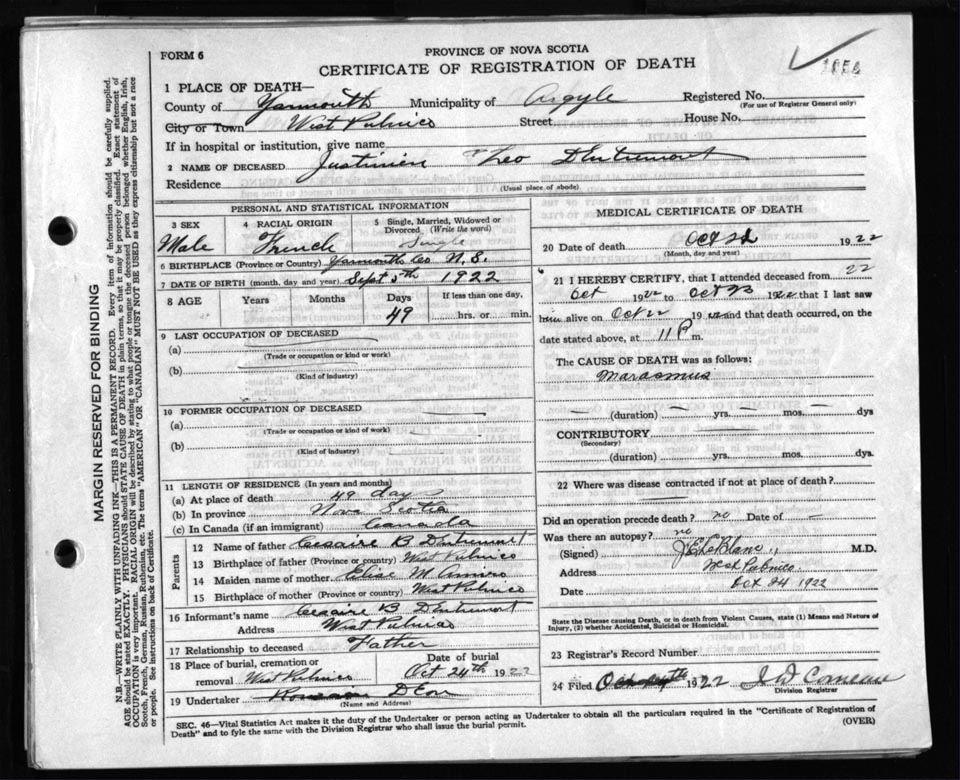 PROVINCE OF NOVA SCOTIA
FORM 6
CERTIFICATE OF REGISTRATION OF DEATH
1 PLACE OF DEATH—
County of Yarmouth Municipality of Argyle Registered No.
(For use of Registrar General only)
City or Town West Pubnico Street House No.
If in hospital or institution, give name
2 NAME OF DECEASED Justinien Leo D'Entremont
Residence
(Usual place of abode)
PERSONAL AND STATISTICAL INFORMATION
3 SEX 4 RACIAL ORIGIN 5 Single, Married, Widowed or Divorced (Write the word)
Male French Single
6 BIRTHPLACE (Province or Country) Yarmouth Co N.S.
7 DATE OF BIRTH (month, day and year) Sept 5th 1922
8 AGE Years Months Days If less than one day,
49 hrs. or min.
9 LAST OCCUPATION OF DECEASED
(a)
(Trade or occupation or kind or work)
(b)
(Kind of industry)
10 FORMER OCCUPATION OF DECEASED
(a)
(Trade or occupation or kind or work)
(b)
(Kind of industry)
11 LENGTH OF RESIDENCE (In years and months)
(a) At place of death 49 days
(b) In province Nova Scotia
(c) In Canada (if an immigrant) Canada
Parents
12 Name of father Cesaire B D'Entremont
13 Birthplace of father (Province or Country) West Pubnico
14 Maiden name of mother Elise M Amiro
15 Birthplace of mother (Province or country) West Pubnico
16 Informant's name Cesaire B D'Entremont
Address West Pubnico
17 Relationship to deceased Father
18 Place of burial, cremation or removal West Pubnico Date of burial Oct 24th 1922
19 Undertaker D'Eon
(Name and Address)
MEDICAL CERTIFICATE OF DEATH
20 Date of death Oct 22 1922
(Month, day and year)
21 I HEREBY CERTIFY, that I attended deceased from 22
Oct 1922 to Oct 23 1922 that I last saw
him alive on Oct 22 1922 and that death occurred, on the
date stated above, at 11 P m.
The CAUSE OF DEATH was as follows:
Marasmus
(duration) yrs. mos. dys
CONTRIBUTORY
(Secondary)
(duration) yrs. mos. dys.
22 Where was disease contracted if not at place of death?
Did an operation precede death? no Date of
Was there an autopsy? no
(Signed) J E LeBlanc M.D.
Address West Pubnico
Date Oct 24 1922
State the Disease causing Death, or in death from Violent Causes, state (1) Means and Nature of Injury, (2) whether Accidental, Suicidal or Homicidal.
23 Registrar's Record Number
24 Filed 1922 Comeau
Division Registrar
SEC. 46—Vital Statistics Act makes it the duty of the Undertaker or person acting as Undertaker to obtain all the particulars required in the "Certificate of Registration of
Death" and to fyle the same with the Division Registrar who shall issue the burial permit. (OVER)
MARGIN RESERVED FOR BINDING
N.B.—WRITE PLAINLY WITH UNFADING INK—THIS IS A PERMANENT RECORD. Every item of information should be carefully supplied.
AGE should be stated EXACTLY. PHYSICIANS should STATE CAUSE OF DEATH in plain terms, so that it may be properly classified. Exact statement of
OCCUPATION is very important. RACIAL ORIGIN will be described by stating to what people or tongue the deceased person belonged, whether English, Irish,
Scotch, French, German, Russian, Ruthenian, etc. The terms "AMERICAN" OR "CANADIAN" MUST NOT BE USED as they express citizenship but not a race
or people. See instructions on back of Certificate.